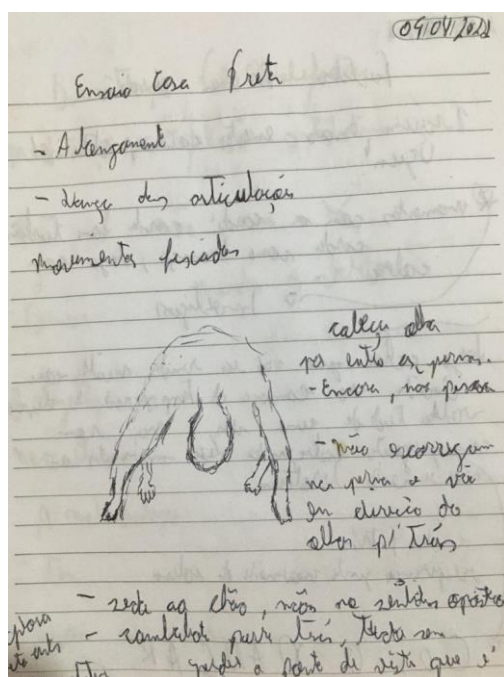 Ensaio Casa Preta
- Alongament
- dança das articulações
movimentos
cabeça olha
por entre as pernas.
- Encara, nas pernas
- mãos escorregam
nas pernas e vão
em direção do
olhar p/ trás
- senta ao chão, mãos no sentido oposto
- cambalhota para trás, sem
perder o ponto de vista que é